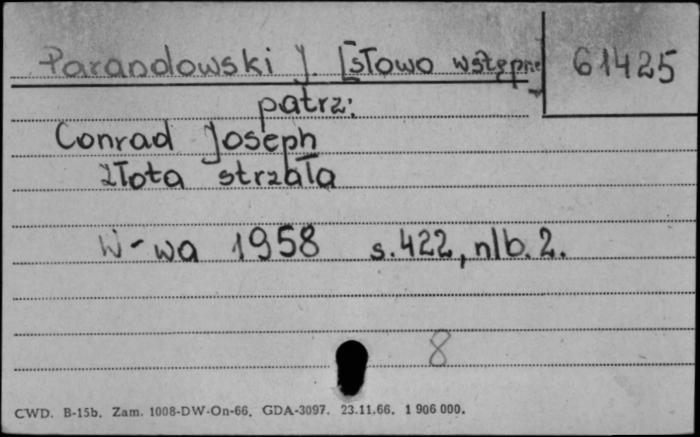 Parandowski J. [słowo wstępne]
61425
patrz:
Conrad Joseph
złota strzała
W-wa 1958 s.422, nlb. 2.
8
CWD. B-15b. Zam. 1008-DW-On-66. GDA-3097. 23.11.66. 1 906 000.